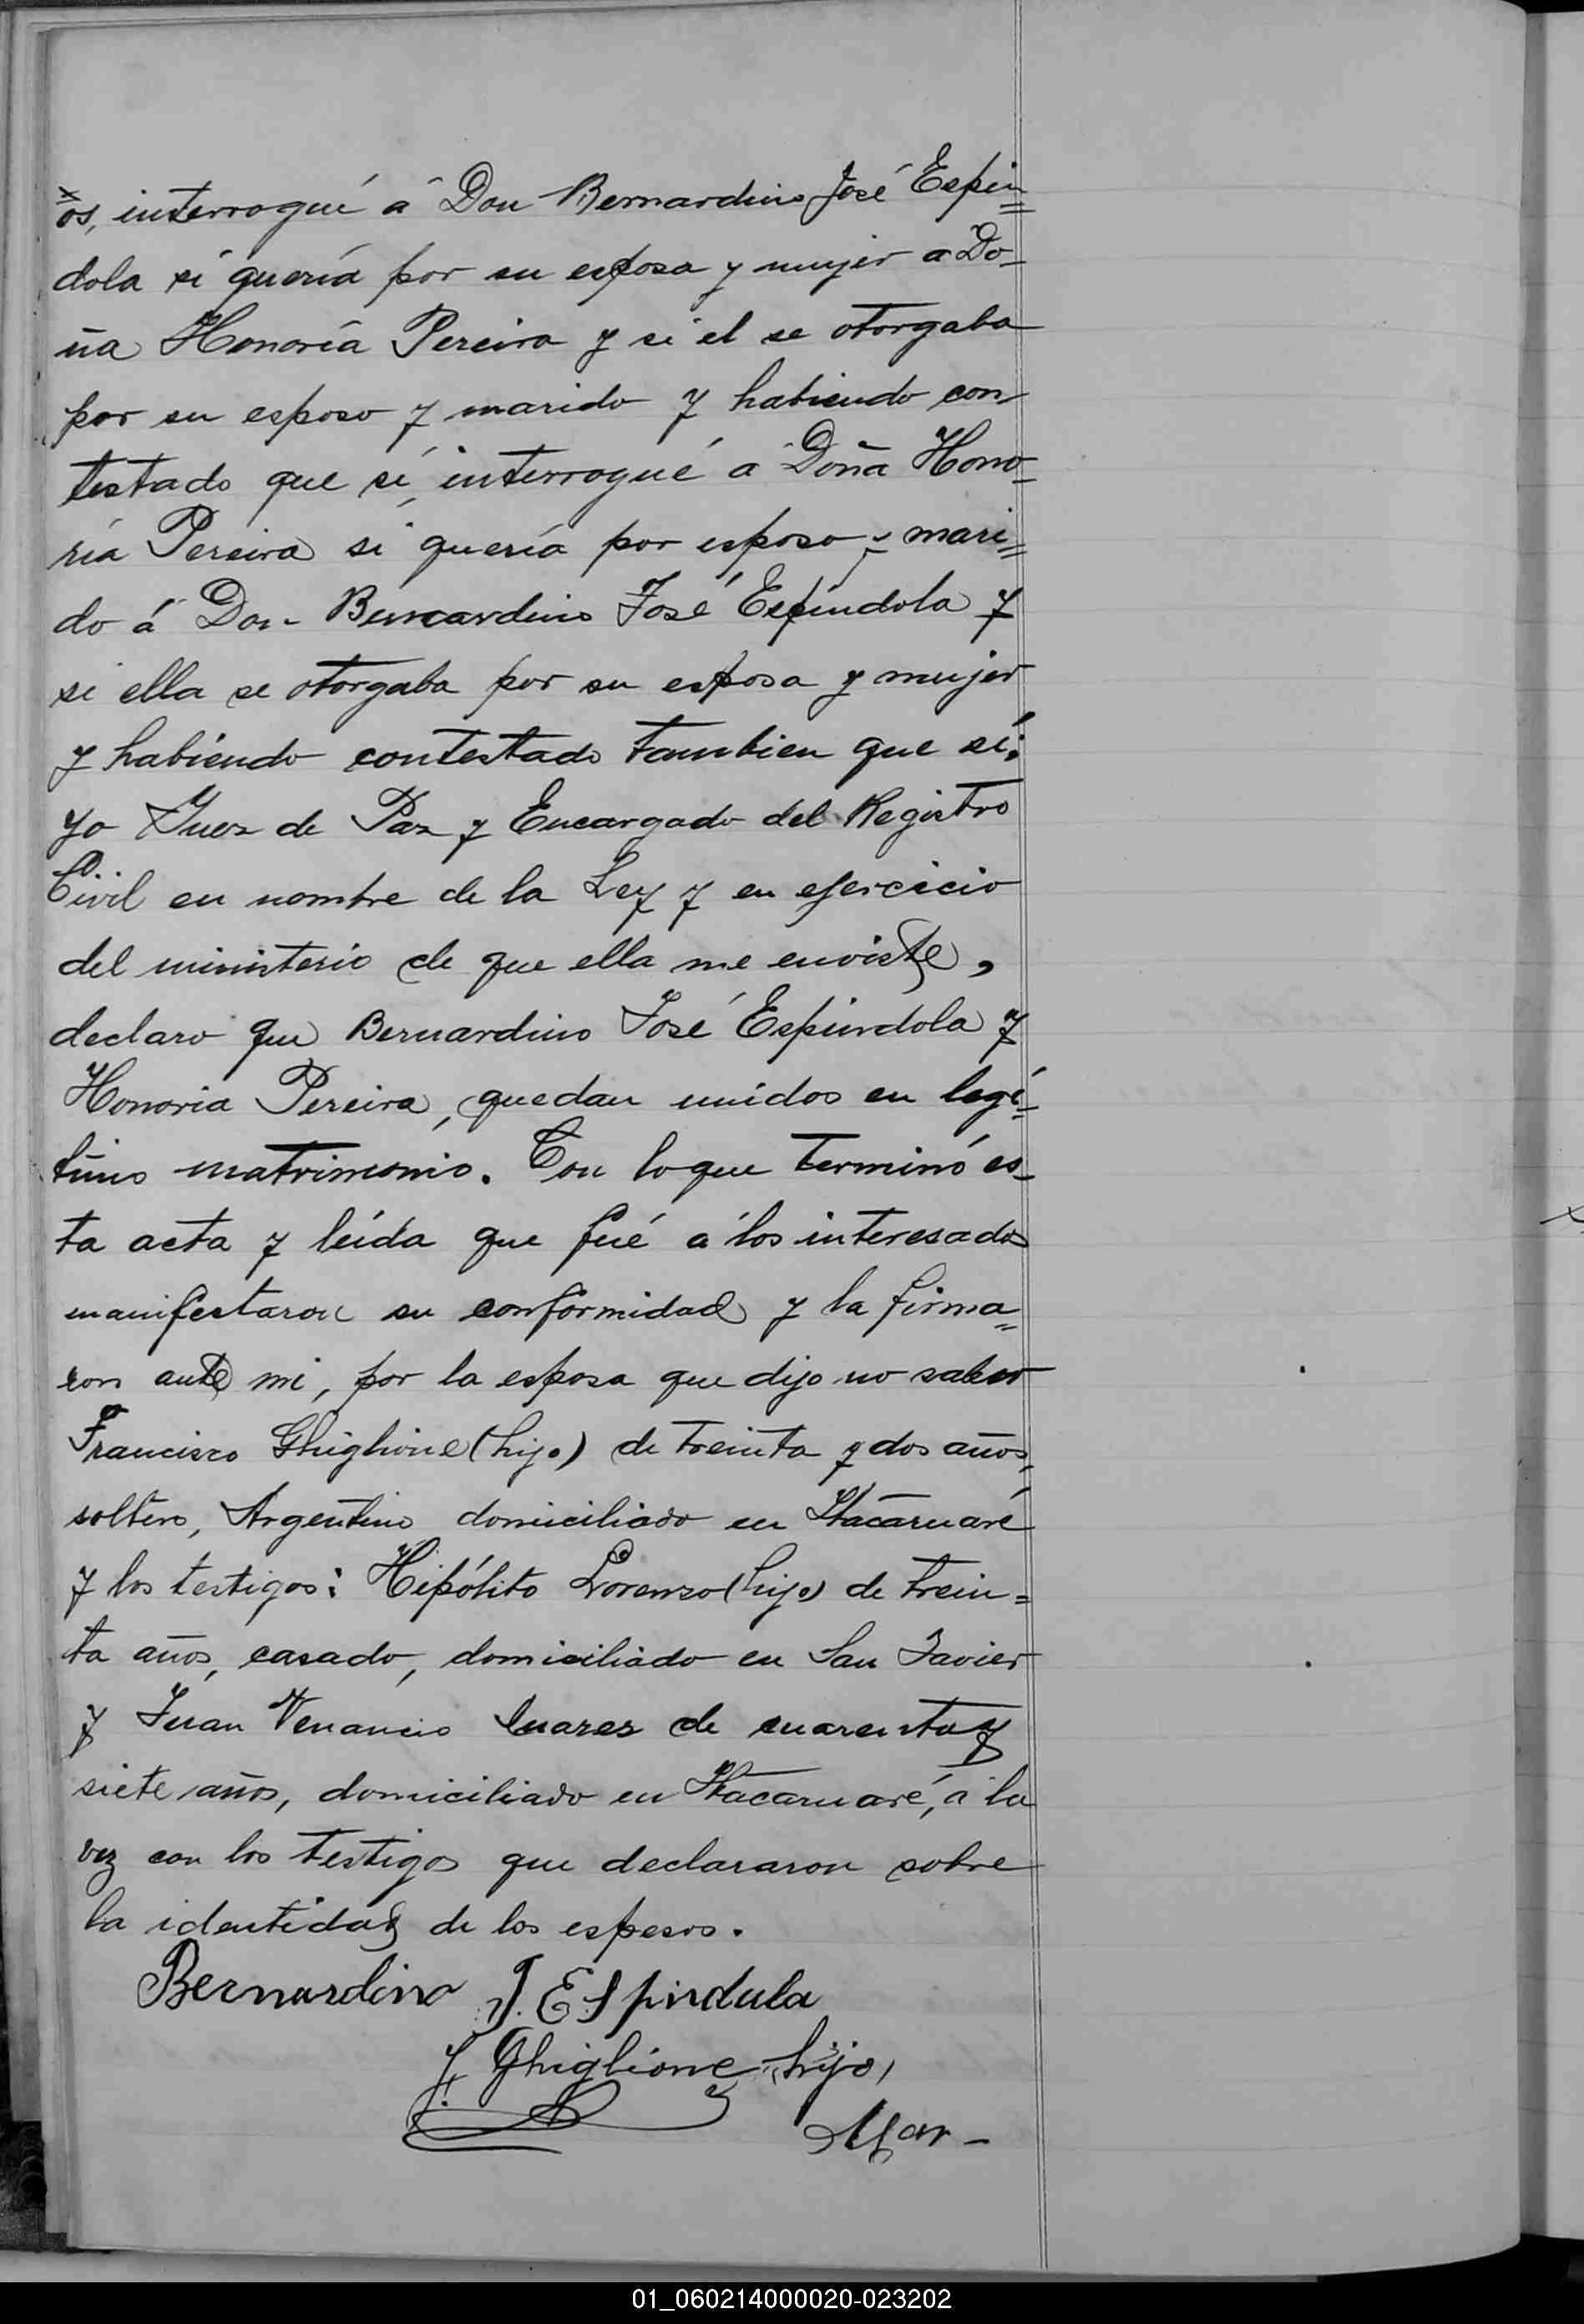 os, interrogué á Don Bernardino José Espin=
dola si quería por su esposa y mujer a Do-
ña Honoría Pereira y si el se otorgaba
por su esposo y marido y habiendo con-
testado que sí, interrogué a Doña Hono=
ría Pereira si quería por esposo y mari=
do á Don Bernardino José Espíndola y
si ella se otorgaba por su esposa y mujer
y habiendo contestado tambien que sí;
yo Juez de Paz y Encargado del Registro
Civil en nombre de la Ley y en ejercicio
del ministerio de que ella me enviste,
declaro que Bernardino José Espíndola y
Honoria Pereira, quedan unidos en legí-
timo matrimonio. Con lo que terminó es-
ta acta y leída que fué á los interesados
manifestaron su conformidad y la firma=
ron ante mi, por la esposa que dijo no saber
Francisco Ghiglione (hijo) de treinta y dos años,
soltero, Argentino domiciliado en Itacaruaré
y los testigos: Hipólito Lorenzo (hijo) de trein=
ta años, casado, domiciliado en San Javier
y Juan Venancio Suarez de cuarenta y
siete años, domiciliado en Itacaruaré, á la
vez con los testigos que declararon sobre
la identidad de los esposos.
Bernardino J. Espindula
F. Ghiglione (hijo)
Mar-
01_060214000020-023202